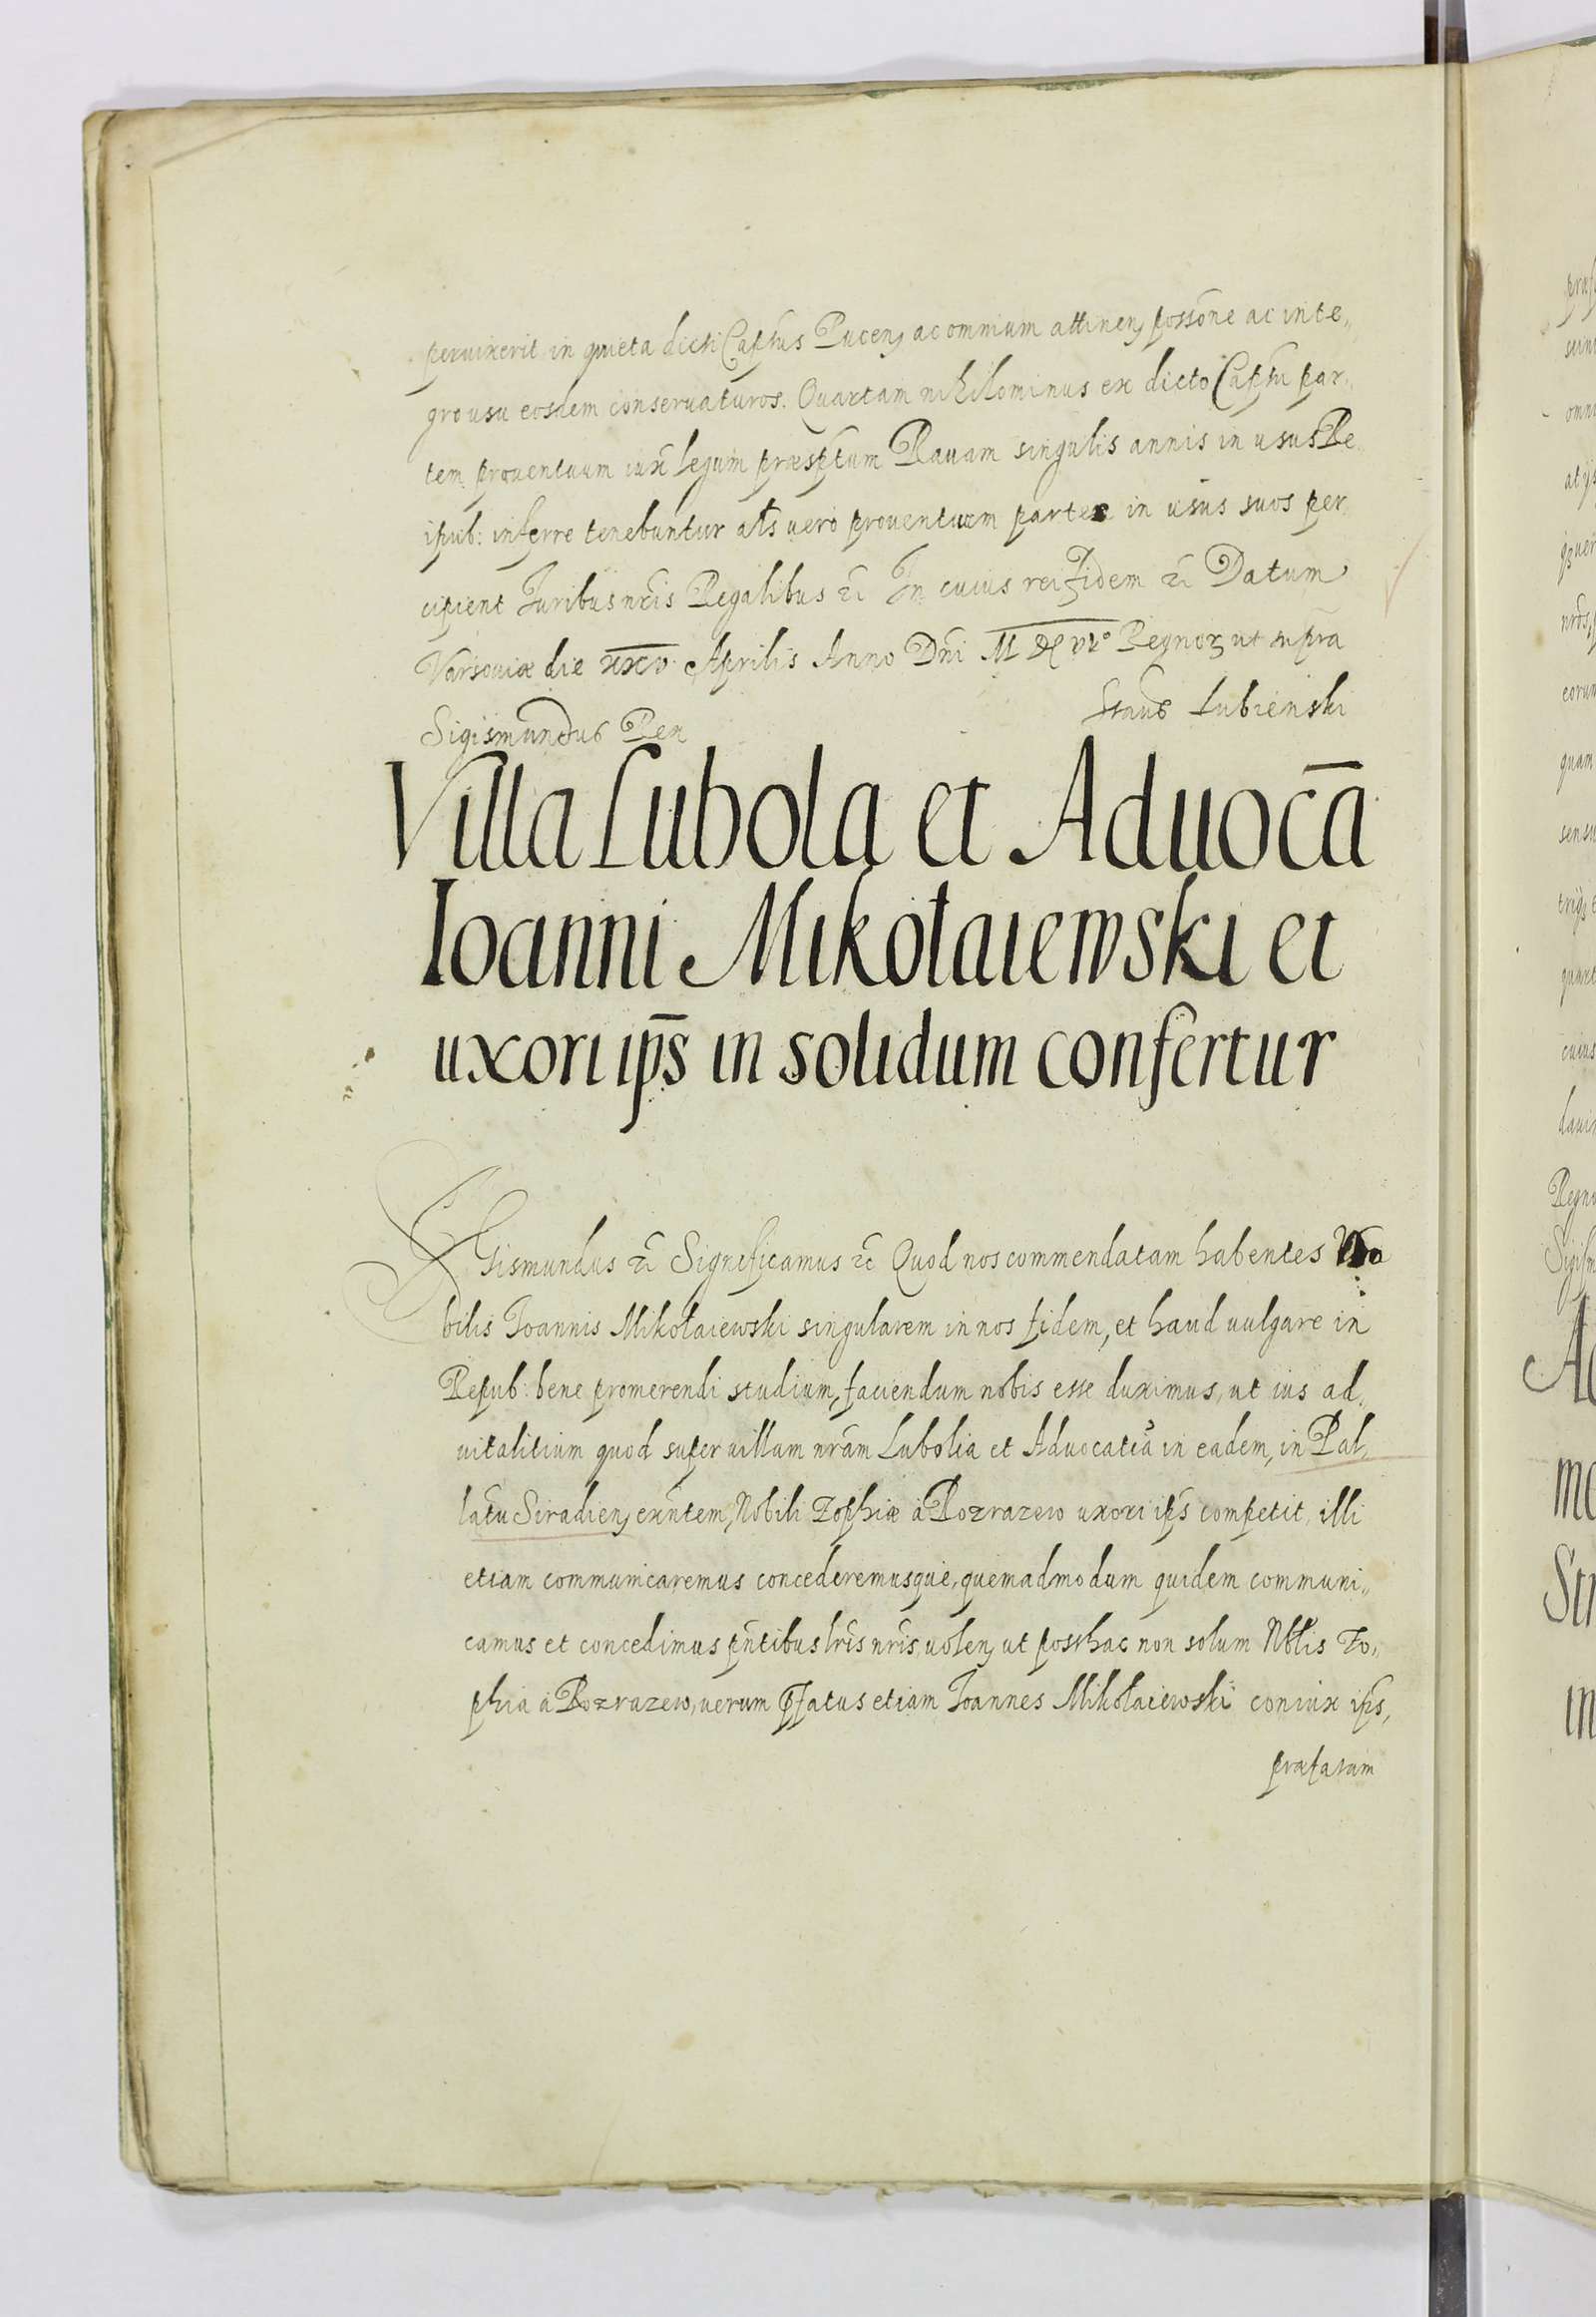 peruixerit in quieta dicti Captus Pucen, ac omnium attinen, possone ac inte,,
gro usu eosdem conseruaturos. Quartam nihilominus ex dicto Captu par,,
tem prouentuum iux legum præsptum Rauam singulis annis in usus Re
ipub: inferre tenebuntur als uero prouentuum partes in usus suos per,
cipient Iuribus nris Regalibus &c In cuius rei fidem &c Datum
Varsouiæ die XXV Aprilis Anno Dni Regnor ut supra
Sigismundus Rex Stans Lubienski
Villa Lubola et Aduocã
Ioanni Mikołaiewski et
uxori ips̄ in solidum confertur
SIGismundus &c Significamus &c Quod nos commendatam habentes No
bilis Ioannis Mikołaiewski singularem in nos fidem, et haud uulgare in
Repub: bene promerendi studium, faciendum nobis esse duximus, ut ius ad,
uitalitium quod super uillam nram Lubolia et Aduocatia in eadem, in Pal,
latu Siradien, exntem, Nobili Zophiæ à Rozrazew uxori ips competit, illi
etiam communicaremus concederemusque, quemadmodum quidem communi,,
camus et concedimus pntibus lris nris, uolen, ut posthac non solum Nblis Zo,
phia à Rozrazew, uerum pfatus etiam Ioannes Mikołaiewski coniux ips,
præfatam